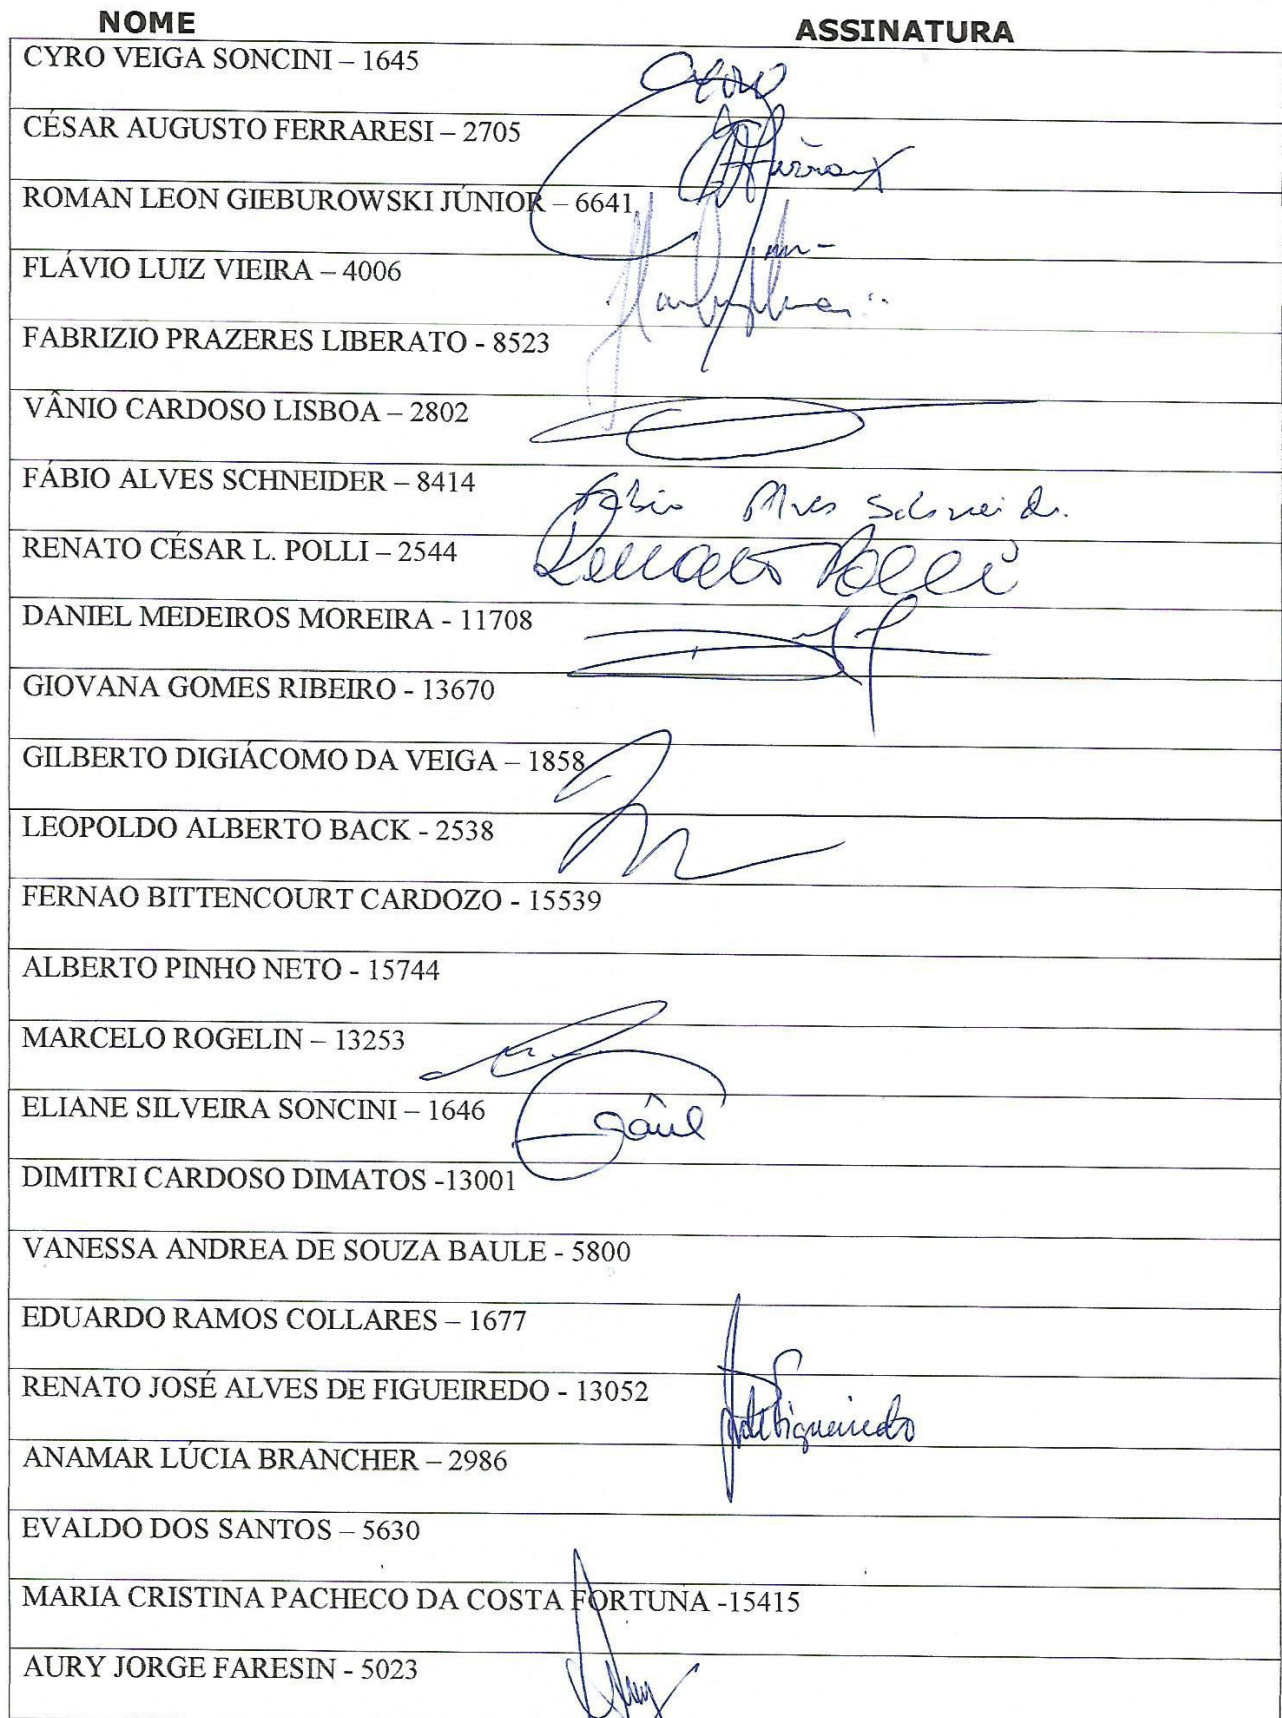 NOME ASSINATURA
CYRO VEIGA SONCINI – 1645
Cyro
CÉSAR AUGUSTO FERRARESI – 2705
ROMAN LEON GIEBUROWSKI JÚNIOR – 6641
FLÁVIO LUIZ VIEIRA – 4006
FABRIZIO PRAZERES LIBERATO - 8523
VÂNIO CARDOSO LISBOA – 2802
FÁBIO ALVES SCHNEIDER – 8414
Fábio Alves Schneider
RENATO CÉSAR L. POLLI – 2544
Renato Polli
DANIEL MEDEIROS MOREIRA - 11708
GIOVANA GOMES RIBEIRO - 13670
GILBERTO DIGIÁCOMO DA VEIGA – 1858
LEOPOLDO ALBERTO BACK - 2538
FERNAO BITTENCOURT CARDOZO - 15539
ALBERTO PINHO NETO - 15744
MARCELO ROGELIN – 13253
ELIANE SILVEIRA SONCINI – 1646
DIMITRI CARDOSO DIMATOS -13001
VANESSA ANDREA DE SOUZA BAULE - 5800
EDUARDO RAMOS COLLARES – 1677
RENATO JOSÉ ALVES DE FIGUEIREDO - 13052
Figueiredo
ANAMAR LÚCIA BRANCHER – 2986
EVALDO DOS SANTOS – 5630
MARIA CRISTINA PACHECO DA COSTA FORTUNA -15415
AURY JORGE FARESIN - 5023